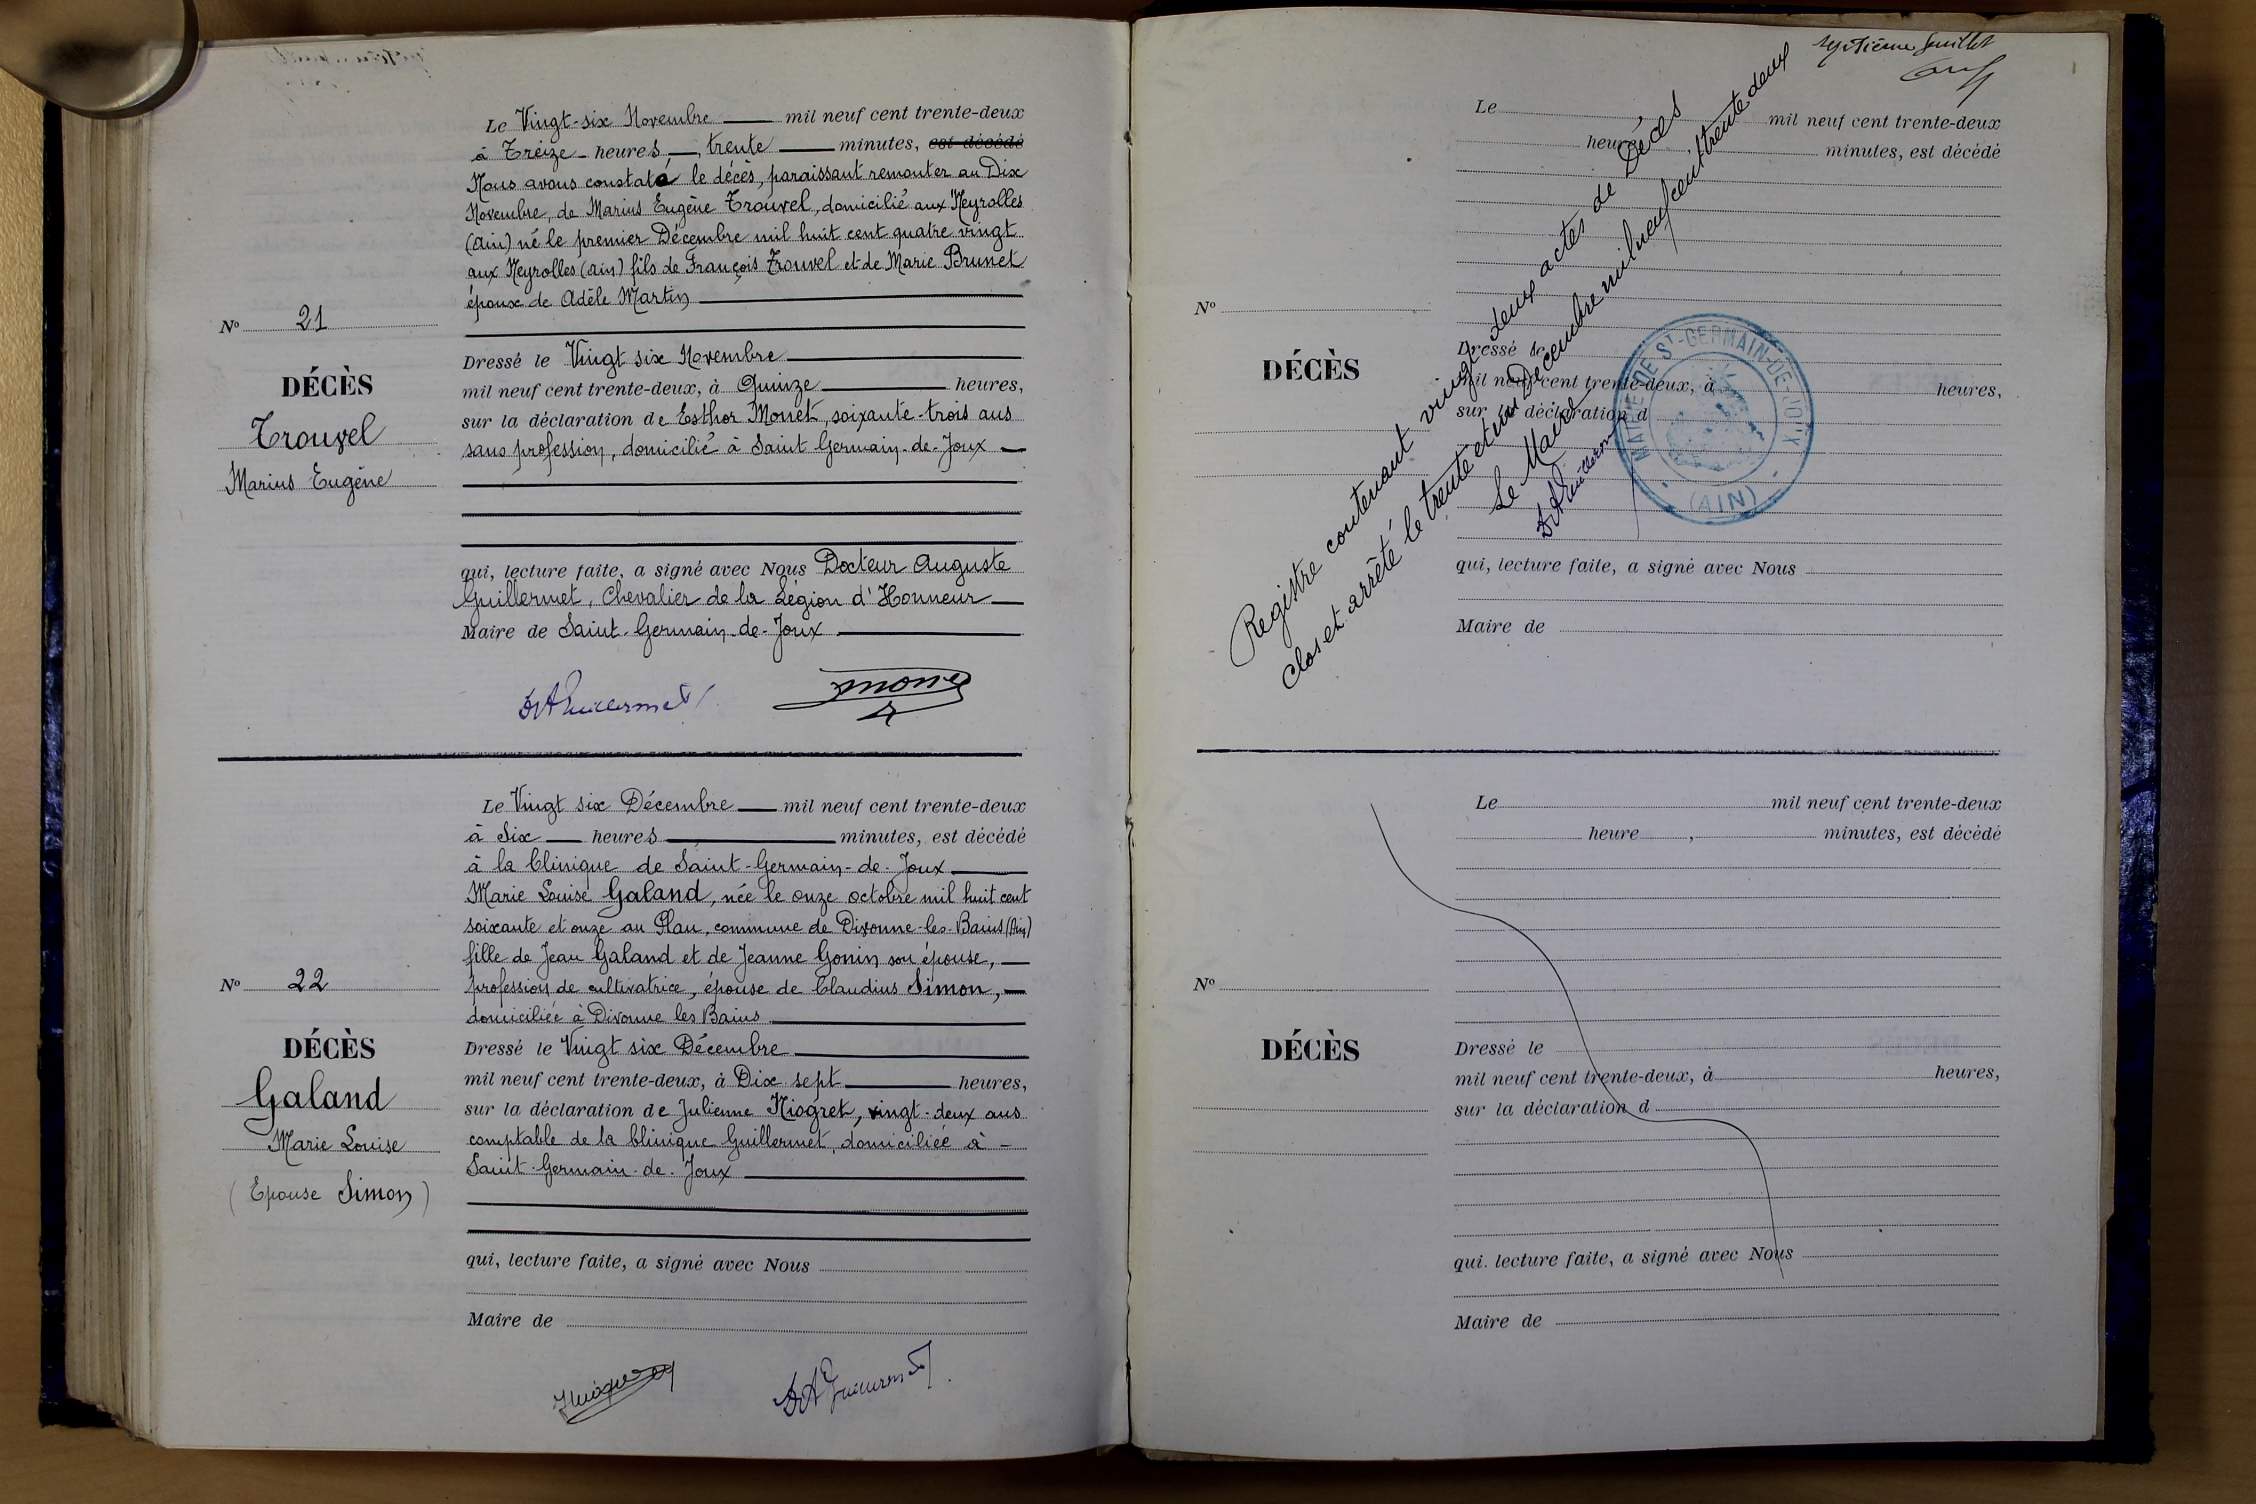 Le Vingt-six Novembre mil neuf cent trente-deux
à Treize heures, trente minutes, est décédé
Nous avons constaté le décès, paraissant remonter au Dix
Novembre, de Marius Eugène Trouvel, domicilié aux Neyrolles
(Ain) né le premier Décembre mil huit cent quatre vingt
aux Neyrolles (Ain) fils de François Trouvel et de Marie Brunet
époux de Adèle Martin
No 21
DÉCÈS
Trouvel
Marius Eugène
Dressé le Vingt six Novembre
mil neuf cent trente-deux, à Quinze heures,
sur la déclaration de Esther Monet, soixante-trois ans
sans profession, domicilié à Saint Germain-de-Joux
qui, lecture faite, a signé avec Nous Docteur Auguste
Guillermet, Chevalier de la Légion d'Honneur
Maire de Saint-Germain-de-Joux
Dr A Guillermet
Monet
Le Vingt six Décembre mil neuf cent trente-deux
à Six heures minutes, est décédé
à la Clinique de Saint-Germain-de-Joux
Marie Louise Galand, née le onze octobre mil huit cent
soixante et onze au Plan, commune de Divonne-les-Bains (Ain)
fille de Jean Galand et de Jeanne Gonin son épouse,
profession de cultivatrice, épouse de Claudius Simon,
domiciliée à Divonne les Bains
No 22
DÉCÈS
Galand
Marie Louise
(Epouse Simon)
Dressé le Vingt six Décembre
mil neuf cent trente-deux, à Dix sept heures,
sur la déclaration de Julienne Niogret, vingt-deux ans
comptable de la Clinique Guillermet, domiciliée à
Saint-Germain-de-Joux
qui, lecture faite, a signé avec Nous
Maire de
Dr A Guillermet
septième feuillet
Le mil neuf cent trente-deux
heure minutes, est décédé
No
DÉCÈS
Dressé le
mil neuf cent trente-deux, à heures,
sur la déclaration d
qui, lecture faite, a signé avec Nous
Maire de
Registre contenant vingt deux actes de Décès
clos et arrêté le trente et un Décembre mil neuf cent trente deux
Le Maire
Dr A Guillermet
MAIRIE DE ST-GERMAIN-DE-JOUX
(AIN)
Le mil neuf cent trente-deux
heure , minutes, est décédé
No
DÉCÈS
Dressé le
mil neuf cent trente-deux, à heures,
sur la déclaration d
qui. lecture faite, a signé avec Nous
Maire de